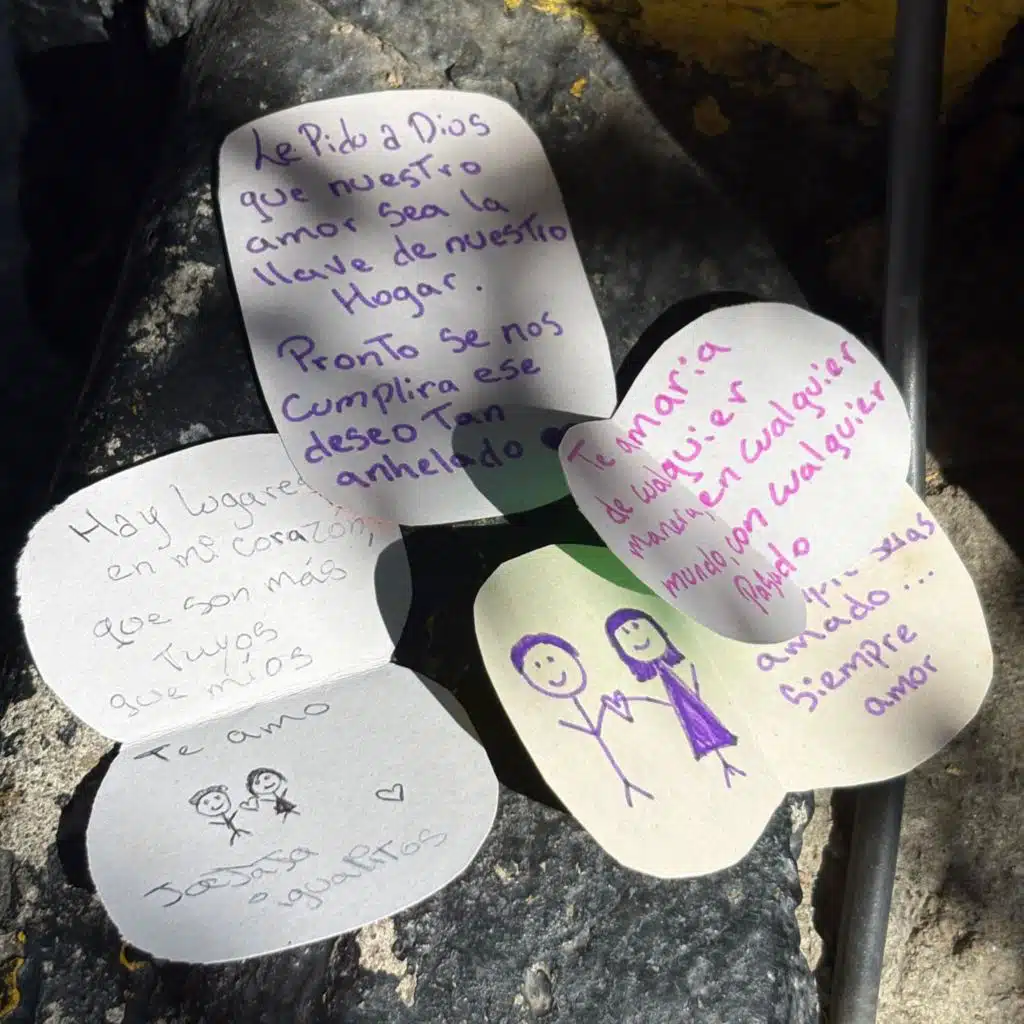 Le Pido a Dios
que nuestro
amor sea la
llave de nuestro
Hogar.
Pronto se nos
Cumplira ese
deseo Tan
anhelado
Te amaria
de cualquier
manera, en cualquier
mundo, con cualquier
Pasado
Hay lugares
en mi corazón,
que son más
Tuyos
que míos
Te amo
JaJaJa
igualitos
seas
amado...
Siempre
amor